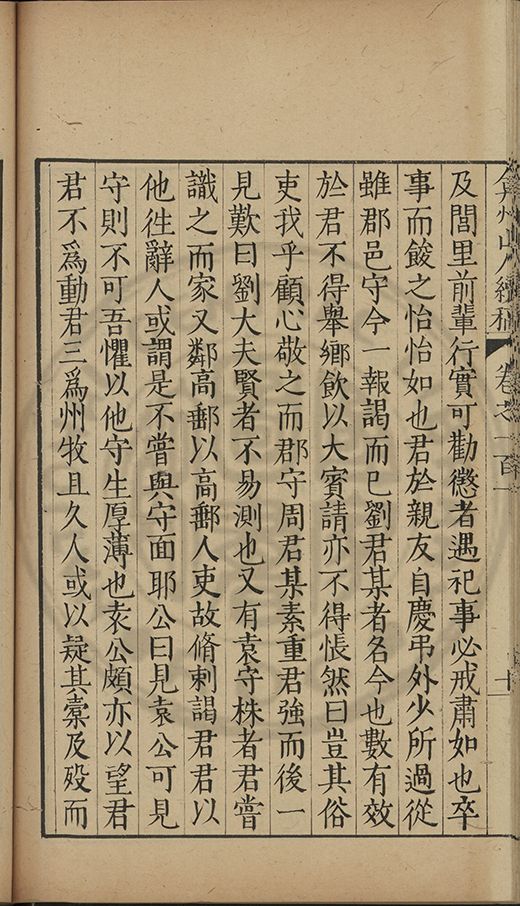 弇州山人續稿 卷之一百 十
及閭里前輩行實可勸懲者遇祀事必戒肅如也卒
事而餕之怡怡如也君於親友自慶弔外少所過從
雖郡邑守今一報謁而已劉君某者名今也數有效
於君不得舉鄉飲以大賓請亦不得悵然曰豈其俗
吏我乎顧心敬之而郡守周君某素重君強而後一
見歎曰劉大夫賢者不易測也又有袁守株者君嘗
識之而家又鄰高郵以高郵人吏故脩刺謁君君以
他徃辭人或謂是不嘗與守面耶公曰見袁公可見
守則不可吾懼以他守生厚薄也袁公頗亦以望君
君不爲動君三爲州牧且久人或以疑其橐及殁而